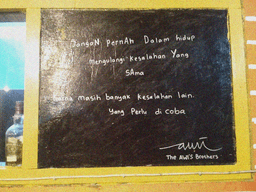 JangaN PernAh Dalam hidup
Mengulangi Kesalahan Yang
SAma
karna masih banyak kesalahan lain.
Yang Perlu di coba
awi
The Awi's Brothers